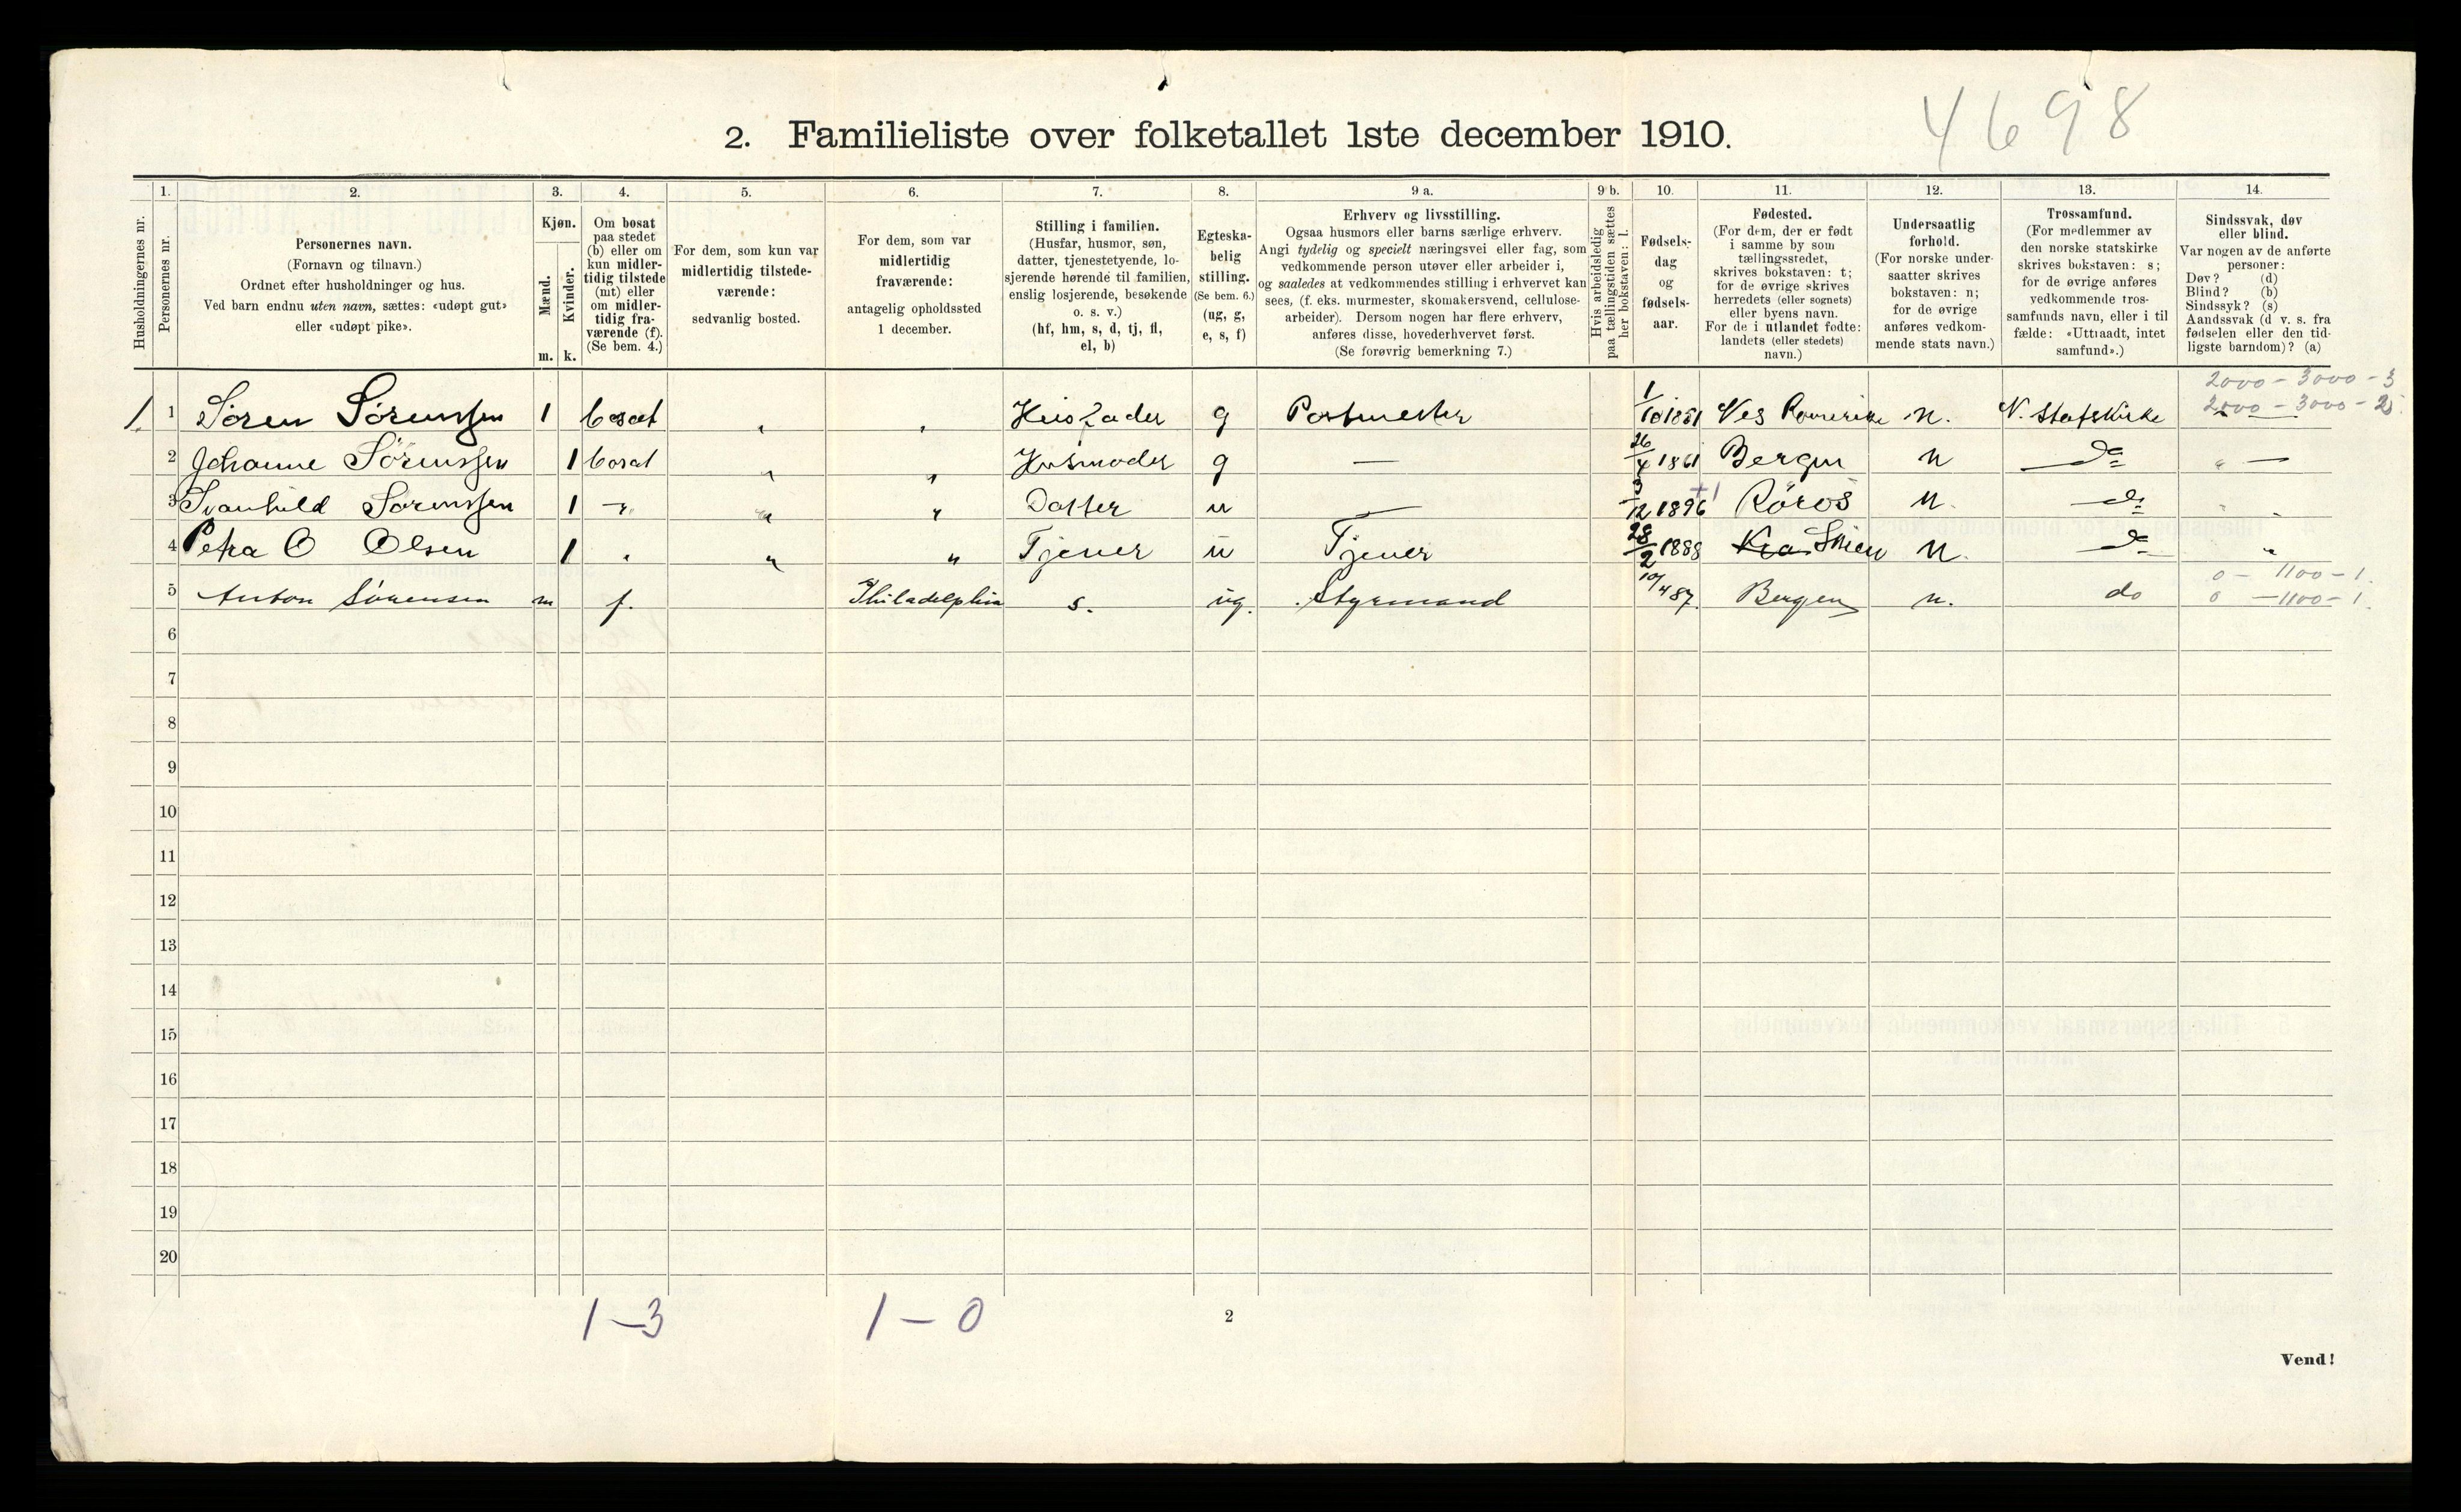 4698
2. Familieliste over folketallet 1ste december 1910.
1. 2. 3. 4. 5. 6. 7. 8. 9 a. 9 b. 10. 11. 12. 13. 14.
Husholdningernes nr.
Personernes nr.
Personernes navn.
(Fornavn og tilnavn.)
Ordnet efter husholdninger og hus.
Ved barn endnu uten navn, sættes: «udøpt gut»
eller «udøpt pike».
Kjøn.
Mænd.
Kvinder.
m. k.
Om bosat
paa stedet
(b) eller om
kun midler-
tidig tilstede
(mt) eller
om midler-
tidig fra-
værende (f).
(Se bem. 4.)
For dem, som kun var
midlertidig tilstede-
værende:
sedvanlig bosted.
For dem, som var
midlertidig
fraværende:
antagelig opholdssted
1 december.
Stilling i familien.
(Husfar, husmor, søn,
datter, tjenestetyende, lo-
sjerende hørende til familien,
enslig losjerende, besøkende
o. s. v.)
(hf, hm, s, d, tj, fl,
el, b)
Egteska-
belig
stilling.
(Se bem. 6.)
(ug, g,
e, s, f)
Erhverv og livsstilling.
Ogsaa husmors eller barns særlige erhverv.
Angi tydelig og specielt næringsvei eller fag, som
vedkommende person utøver eller arbeider i,
og saaledes at vedkommendes stilling i erhvervet kan
sees, (f. eks. murmester, skomakersvend, cellulose-
arbeider). Dersom nogen har flere erhverv,
anføres disse, hovederhvervet først.
(Se forøvrig bemerkning 7.)
Hvis arbeidsledig
paa tællingstiden sættes
her bokstaven: l.
Fødsels-
dag
og
fødsels-
aar.
Fødested.
(For dem, der er født
i samme by som
tællingsstedet,
skrives bokstaven: t;
for de øvrige skrives
herredets (eller sognets)
eller byens navn.
For de i utlandet fødte:
landets (eller stedets)
navn.)
Undersaatlig
forhold.
(For norske under-
saatter skrives
bokstaven: n;
for de øvrige
anføres vedkom-
mende stats navn.)
Trossamfund.
(For medlemmer av
den norske statskirke
skrives bokstaven: s;
for de øvrige anføres
vedkommende tros-
samfunds navn, eller i til
fælde: «Uttraadt, intet
samfund».)
Sindssvak, døv
eller blind.
Var nogen av de anførte
personer:
Døv? (d)
Blind? (b)
Sindssyk? (s)
Aandssvak (d. v. s. fra
fødselen eller den tid-
ligste barndom)? (a)
2000 - 3000 - 3
1. 1 Sören Sörenssen 1 bosat " " Husfader g Postmester 1/10 1851 Ves Romerike n. N. Statskirke 2000 - 3000 - 25
2 Johanne Sörenssen 1 bosat " " Husmoder g — 26/4 1861 Bergen n do " —
3 Svanhild Sörenssen 1 " " " Datter u — 3/12 1896 +1 Röros n. do " "
4 Petra O Olsen 1 " " " Tjener u Tjener 28/2 1888 Kra Skien n. do "
0 - 1100 - 1.
5 Anton Sörensen m f. Philadelphia s. ug. Styrmand 10/4 87. Bergen n. do 0 - 1100 - 1.
6
7
8
9
10
11
12
13
14
15
16
17
18
19
20
1-3 1-0
2
Vend!